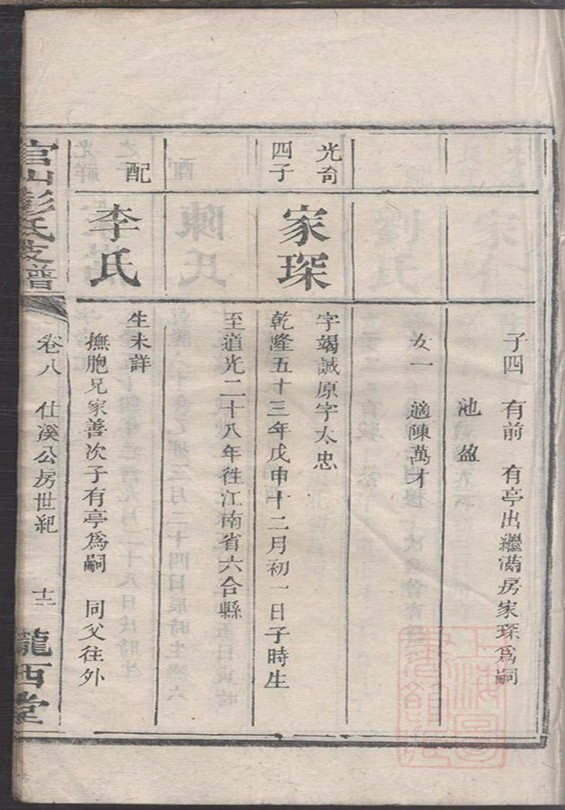 子四 有前 有亭出繼滿房家琛爲嗣
池 盈
女一 適陳萬才
光奇
四子
家琛
字竭誠原字太忠
乾隆五十三年戊申十二月初一日子時生
至道光二十八年徃江南省六合縣
配
李氏
生未詳
撫胞兄家善次子有亭爲嗣 同父往外
官山彭氏支譜
卷八 仕溪公房世紀 十二
隴西堂
上海圖書館藏